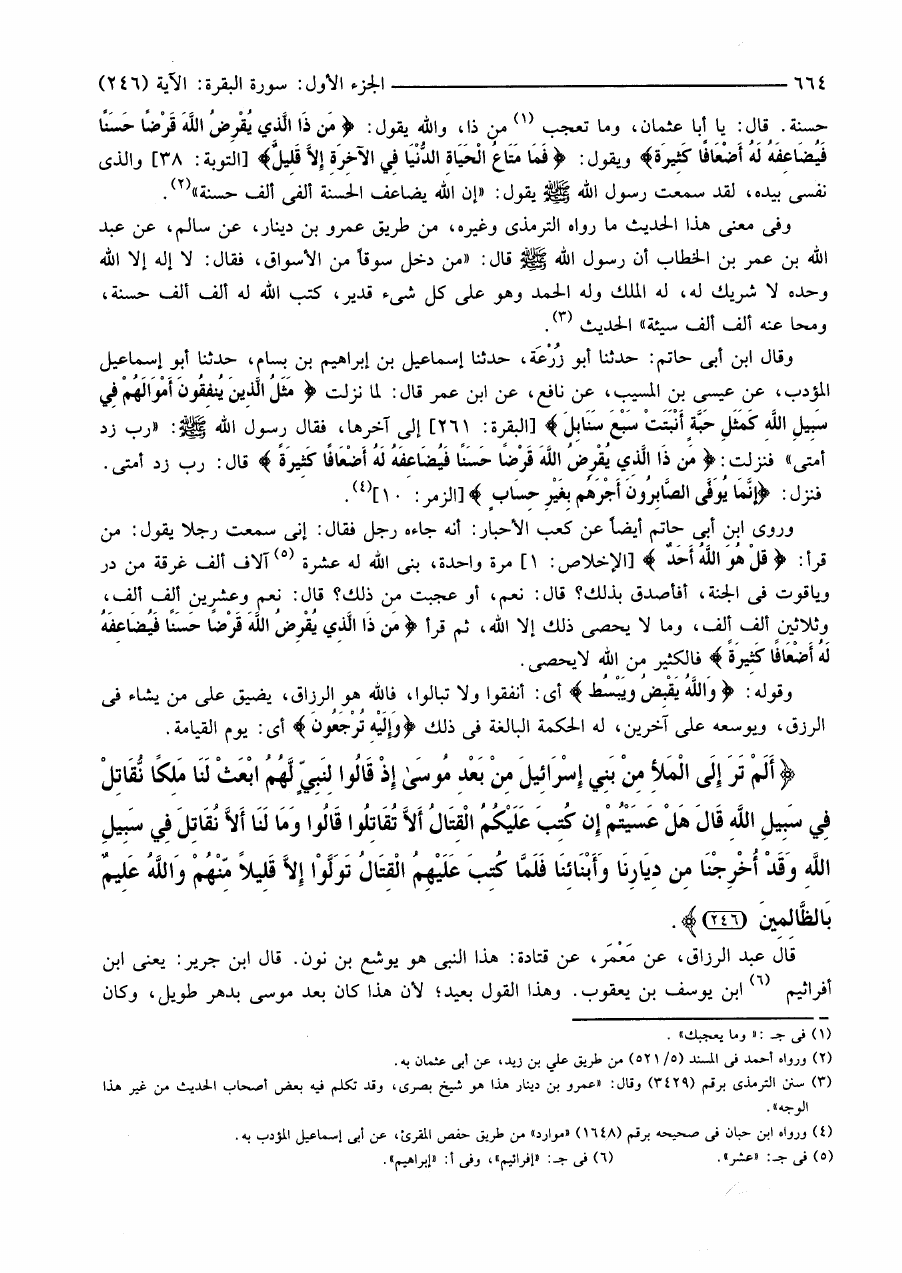 ٦٦٤ ــــــ الجزء الأول: سورة البقرة: الآية (٢٤٦)
حسنة. قال: يا أبا عثمان، وما تعجب (١) من ذا، والله يقول: ﴿ مَن ذَا الَّذِي يُقْرِضُ اللَّهَ قَرْضًا حَسَنًا
فَيُضَاعِفَهُ لَهُ أَضْعَافًا كَثِيرَةً﴾ ويقول: ﴿ فَمَا مَتَاعُ الْحَيَاةِ الدُّنْيَا فِي الآخِرَةِ إِلاَّ قَلِيلٌ﴾ [التوبة: ٣٨] والذى
نفسى بيده، لقد سمعت رسول الله ﷺ يقول: «إن الله يضاعف الحسنة ألفى ألف حسنة»(٢).
وفى معنى هذا الحديث ما رواه الترمذى وغيره، من طريق عمرو بن دينار، عن سالم، عن عبد
الله بن عمر بن الخطاب أن رسول الله ﷺ قال: «من دخل سوقاً من الأسواق، فقال: لا إله إلا الله
وحده لا شريك له، له الملك وله الحمد وهو على كل شىء قدير، كتب الله له ألف ألف حسنة،
ومحا عنه ألف ألف سيئة» الحديث (٣).
وقال ابن أبى حاتم: حدثنا أبو زُرْعَة، حدثنا إسماعيل بن إبراهيم بن بسام، حدثنا أبو إسماعيل
المؤدب، عن عيسى بن المسيب، عن نافع، عن ابن عمر قال: لما نزلت ﴿ مَثَلُ الَّذِينَ يُنفِقُونَ أَمْوَالَهُمْ فِي
سَبِيلِ اللَّهِ كَمَثَلِ حَبَّةٍ أَنْبَتَتْ سَبْعَ سَنَابِلَ ﴾ [البقرة: ٢٦١] إلى آخرها، فقال رسول الله ﷺ: «رب زد
أمتى» فنزلت: ﴿ مَن ذَا الَّذِي يُقْرِضُ اللَّهَ قَرْضًا حَسَنًا فَيُضَاعِفَهُ لَهُ أَضْعَافًا كَثِيرَةً ﴾ قال: رب زد أمتى.
فنزل: ﴿إِنَّمَا يُوَفَّى الصَّابِرُونَ أَجْرَهُم بِغَيْرِ حِسَابٍ ﴾ [الزمر: ١٠](٤).
وروى ابن أبى حاتم أيضاً عن كعب الأحبار: أنه جاءه رجل فقال: إنى سمعت رجلا يقول: من
قرأ: ﴿ قُلْ هُوَ اللَّهُ أَحَدٌ ﴾ [الإخلاص: ١] مرة واحدة، بنى الله له عشرة (٥) آلاف ألف غرفة من در
وياقوت فى الجنة، أفأصدق بذلك؟ قال: نعم، أو عجبت من ذلك؟ قال: نعم وعشرين ألف ألف،
وثلاثين ألف ألف، وما لا يحصى ذلك إلا الله، ثم قرأ ﴿ مَن ذَا الَّذِي يُقْرِضُ اللَّهَ قَرْضًا حَسَنًا فَيُضَاعِفَهُ
لَهُ أَضْعَافًا كَثِيرَةً ﴾ فالكثير من الله لايحصى.
وقوله: ﴿ وَاللَّهُ يَقْبِضُ وَيَبْسُطُ ﴾ أى: أنفقوا ولا تبالوا، فالله هو الرزاق، يضيق على من يشاء فى
الرزق، ويوسعه على آخرين، له الحكمة البالغة فى ذلك ﴿وَإِلَيْهِ تُرْجَعُونَ ﴾ أى: يوم القيامة.
﴿ أَلَمْ تَرَ إِلَى الْمَلأِ مِنْ بَنِي إِسْرَائِيلَ مِنْ بَعْدِ مُوسَىٰ إِذْ قَالُوا لِنَبِيٍّ لَّهُمُ ابْعَثْ لَنَا مَلِكًا نُّقَاتِلْ
فِي سَبِيلِ اللَّهِ قَالَ هَلْ عَسَيْتُمْ إِن كُتِبَ عَلَيْكُمُ الْقِتَالُ أَلاَّ تُقَاتِلُوا قَالُوا وَمَا لَنَا أَلاَّ نُقَاتِلَ فِي سَبِيلِ
اللَّهِ وَقَدْ أُخْرِجْنَا مِن دِيَارِنَا وَأَبْنَائِنَا فَلَمَّا كُتِبَ عَلَيْهِمُ الْقِتَالُ تَوَلَّوْا إِلاَّ قَلِيلاً مِّنْهُمْ وَاللَّهُ عَلِيمٌ
بِالظَّالِمِينَ (٢٤٦) ﴾.
قال عبد الرزاق، عن مَعْمَر، عن قتادة: هذا النبى هو يوشع بن نون. قال ابن جرير: يعنى ابن
أفرائيم (٦) ابن يوسف بن يعقوب. وهذا القول بعيد؛ لأن هذا كان بعد موسى بدهر طويل، وكان
(١) فى جـ :« وما يعجبك» .
(٢) ورواه أحمد فى المسند (٥٢١/٥) من طريق علي بن زيد، عن أبى عثمان به.
(٣) سنن الترمذى برقم (٣٤٢٩) وقال: «عمرو بن دينار هذا هو شيخ بصرى، وقد تكلم فيه بعض أصحاب الحديث من غير هذا
الوجه».
(٤) ورواه ابن حبان فى صحيحه برقم (١٦٤٨) «موارد» من طريق حفص المقرئ، عن أبى إسماعيل المؤدب به.
(٥) فى جـ: «عشر». (٦) فى جـ: «إفرائيم»، وفى أ: «إبراهيم».